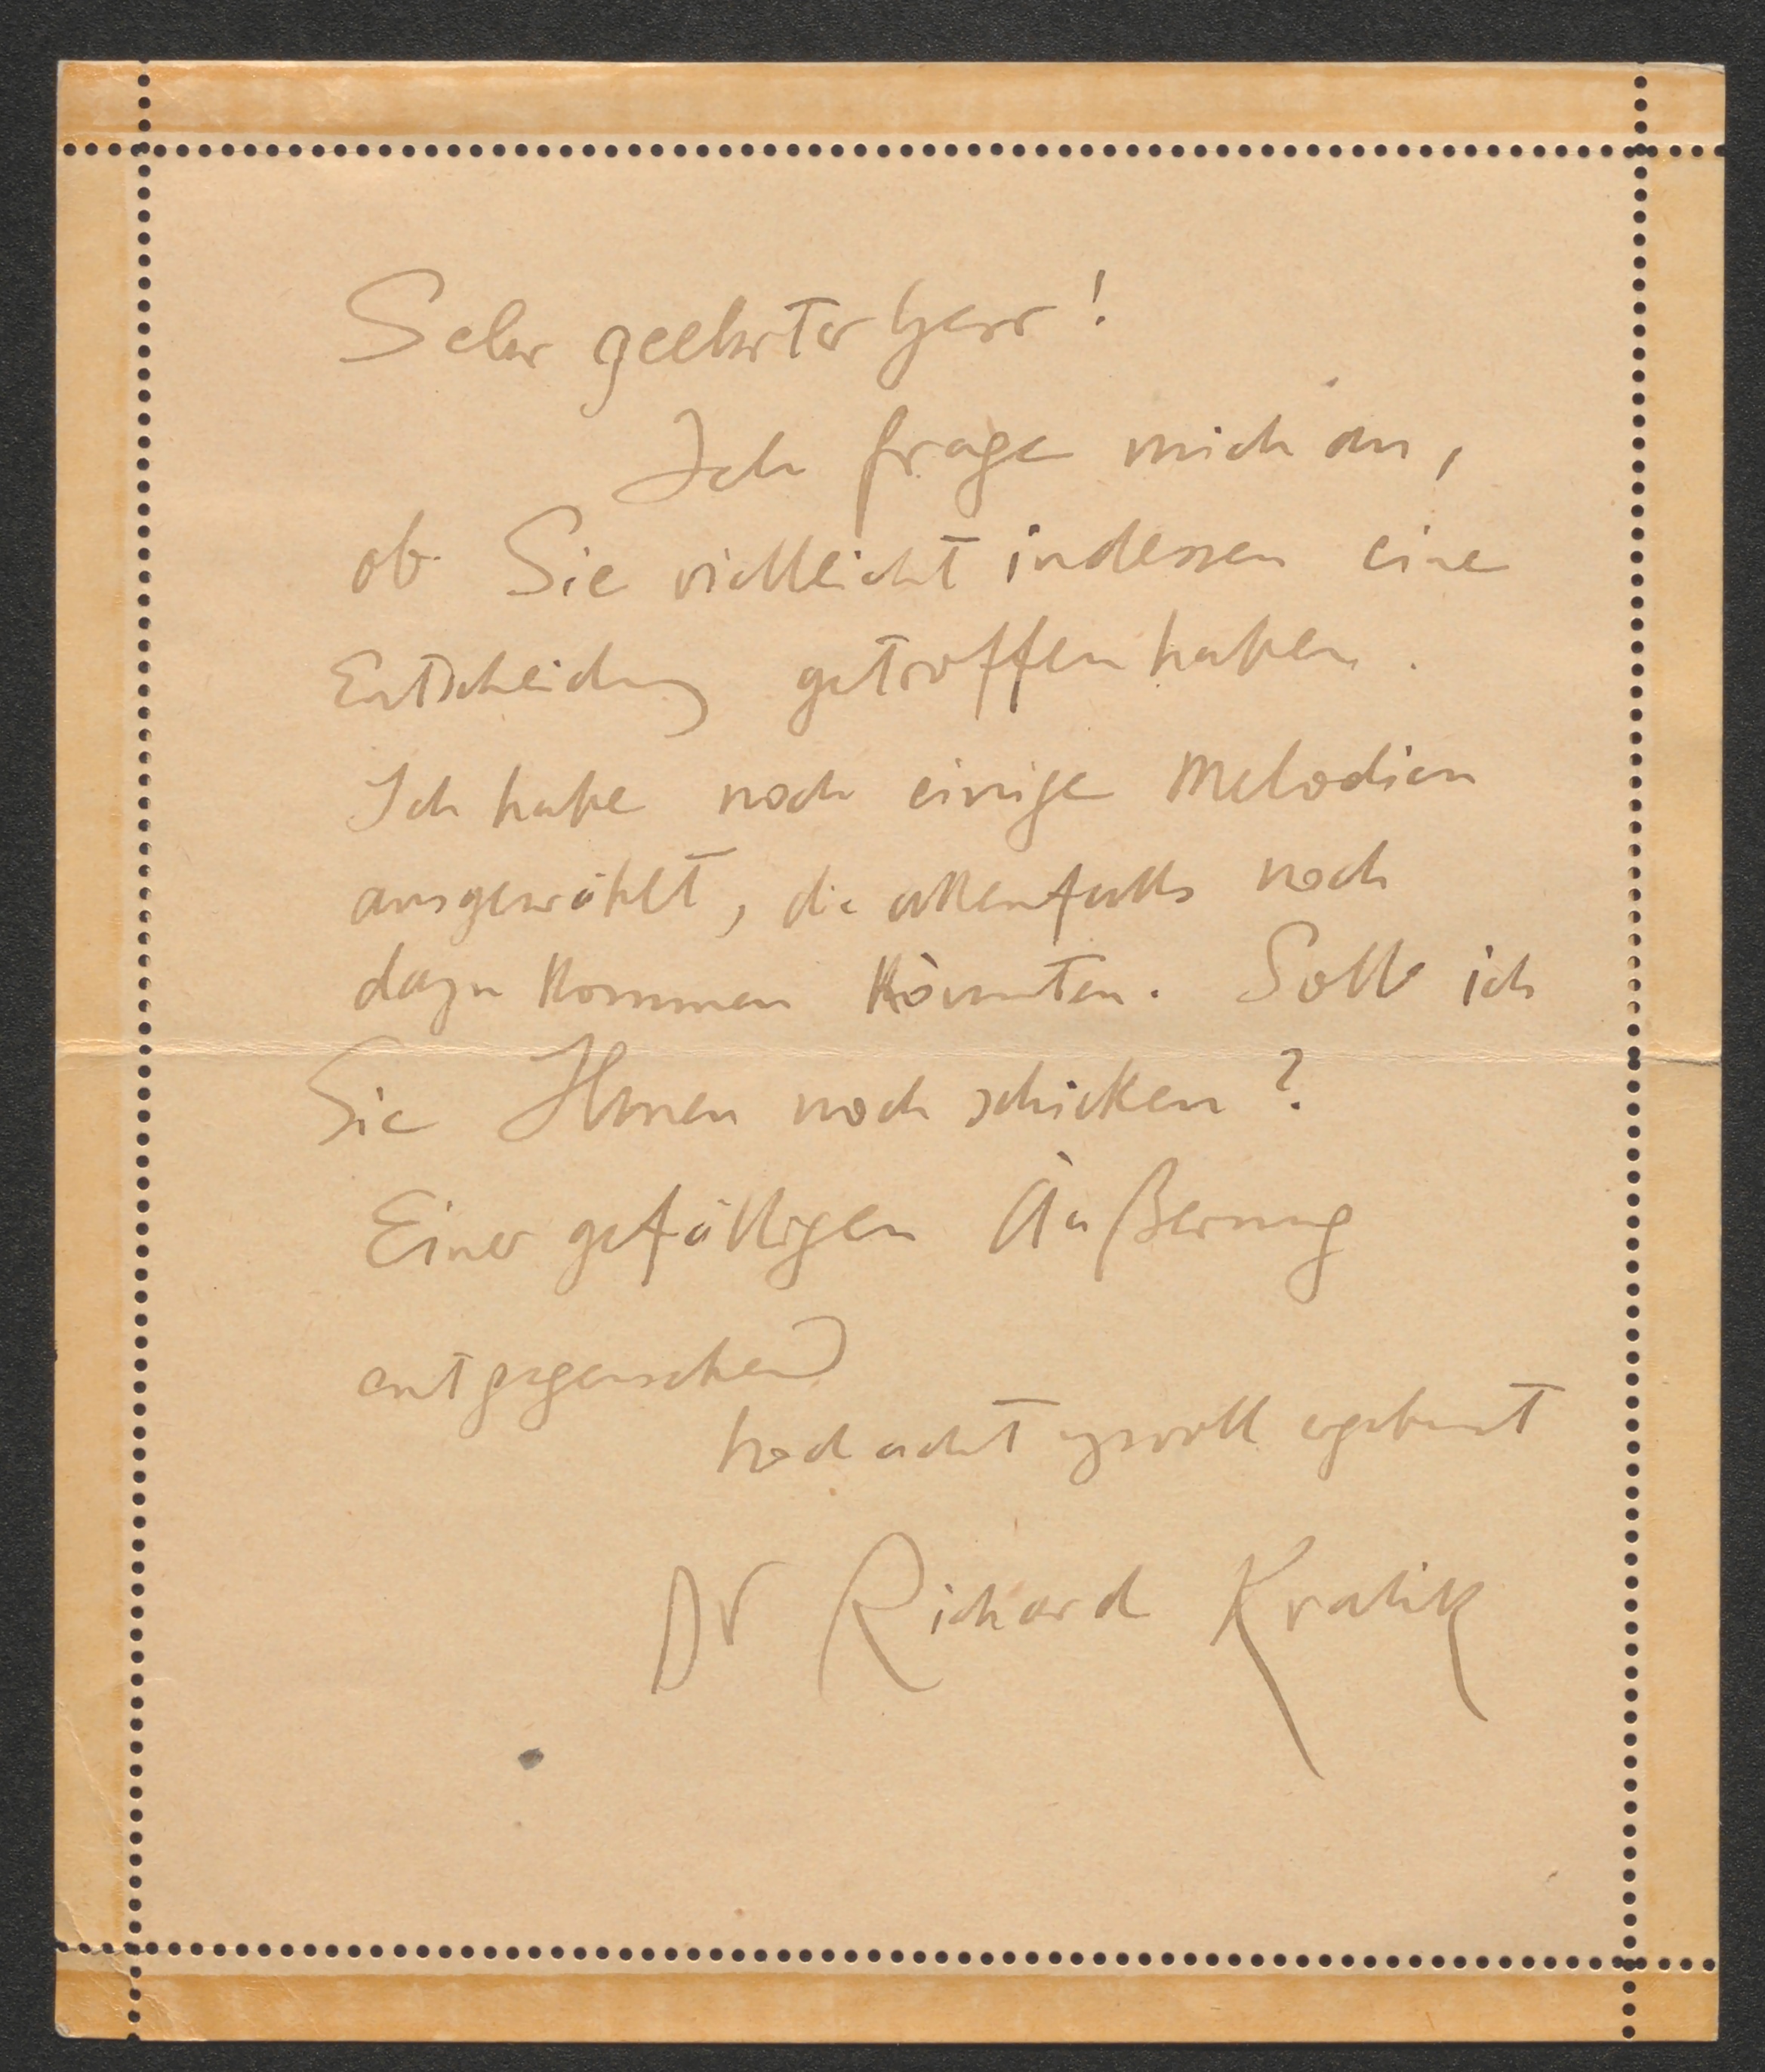 Sehr geehrter Herr!
Ich frage mich an,
ob Sie vielleicht indessen eine
Entscheidung getroffen haben.
Ich habe noch einige Melodien
ausgewählt, die allenfalls noch
dazu kommen könnten. Soll ich
Sie Ihnen noch schicken?
Einer gefälligen Äußerung
entgegensehend
hochachtungsvoll ergebenst
Dr Richard Kralik